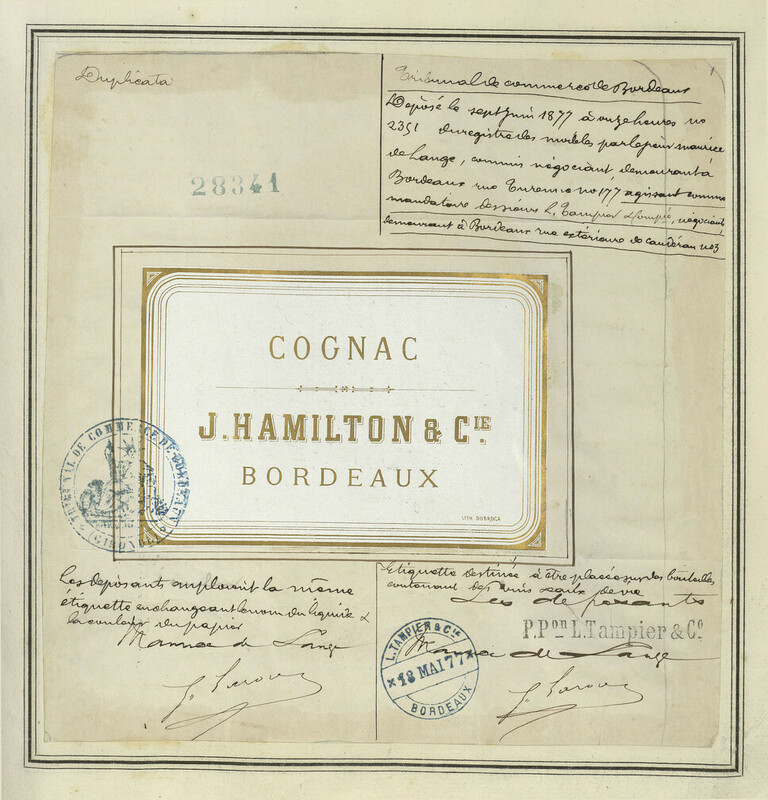 Duplicata
28341
1
Tribunal de commerce de Bordeaux
Déposé le sept Juin 1877 à onze heures no
2351 du registre des modèles par le sieur Maurice
de Lange, commis négociant, demeurant à
Bordeaux rue Turenne no 177 agissant comme
mandataire des sieurs L. Tampier & Compie, négociant
demeurant à Bordeaux rue extérieure de Caudéran no 3
COGNAC
J. HAMILTON & CIE.
BORDEAUX
LITH.
TRIBUNAL DE COMMERCE DE BORDEAUX
(GIRONDE)
Les déposants emploient la même
étiquette en changeant le nom du liquide &
la couleur du papier
Maurice de Lange
Etiquette destinée à être placée sur des bouteilles
contenant des vins eaux de vie
Les déposants
P. Pon L. Tampier & Co
L. TAMPIER & CIE
18 MAI 77
BORDEAUX
Maurice de Lange